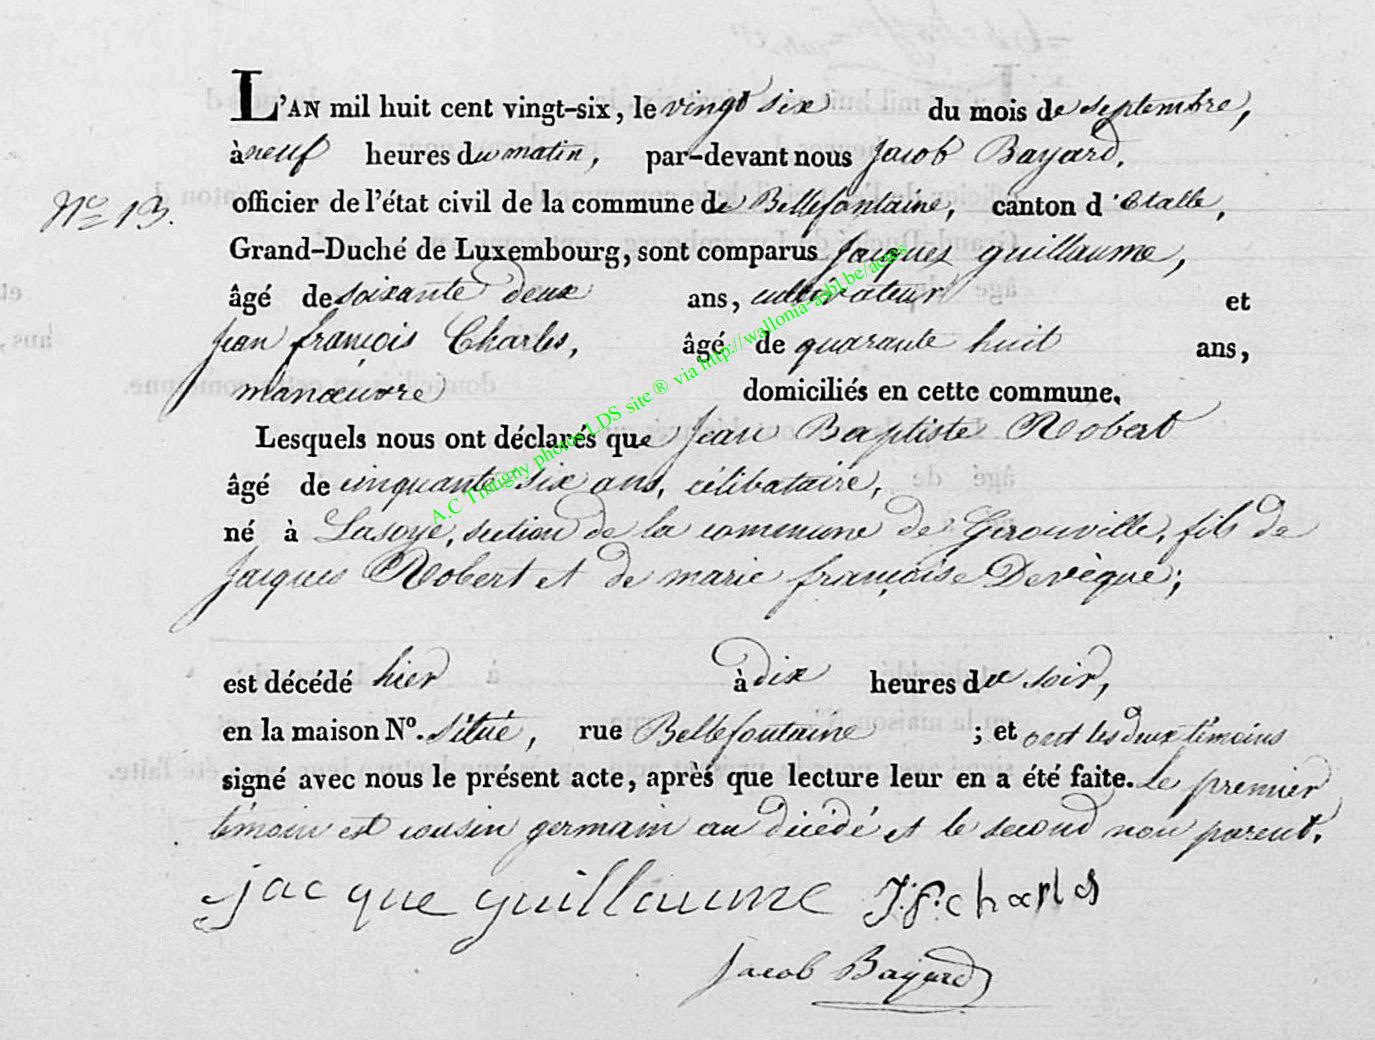 L'AN mil huit cent vingt-six, le vingt six du mois de septembre,
à neuf heures du matin, par-devant nous Jacob Bayard,
officier de l'état civil de la commune de Bellefontaine, canton d'Etalle,
N.º 13.
Grand-Duché de Luxembourg, sont comparus Jacques guillaume,
âgé de soixante deux ans, cultivateur et
Jean françois Charles, âgé de quarante huit ans,
manœuvre domiciliés en cette commune.
Lesquels nous ont déclarés que Jean Baptiste Robert
âgé de cinquante six ans, célibataire,
né à Lasoye, section de la commune de Gerouville, fils de
Jacques Robert et de marie françoise Devèque;
est décédé hier à dix heures du soir,
en la maison Nº. situé, rue Bellefontaine ; et ont les deux témoins
signé avec nous le présent acte, après que lecture leur en a été faite. Le premier
témoin est cousin germain au décédé et le second non parent.
jacque guillaume J.f.charles
Jacob Bayard
A.C Tintigny photos LDS site ® via http://wallonia-asbl.be/actes